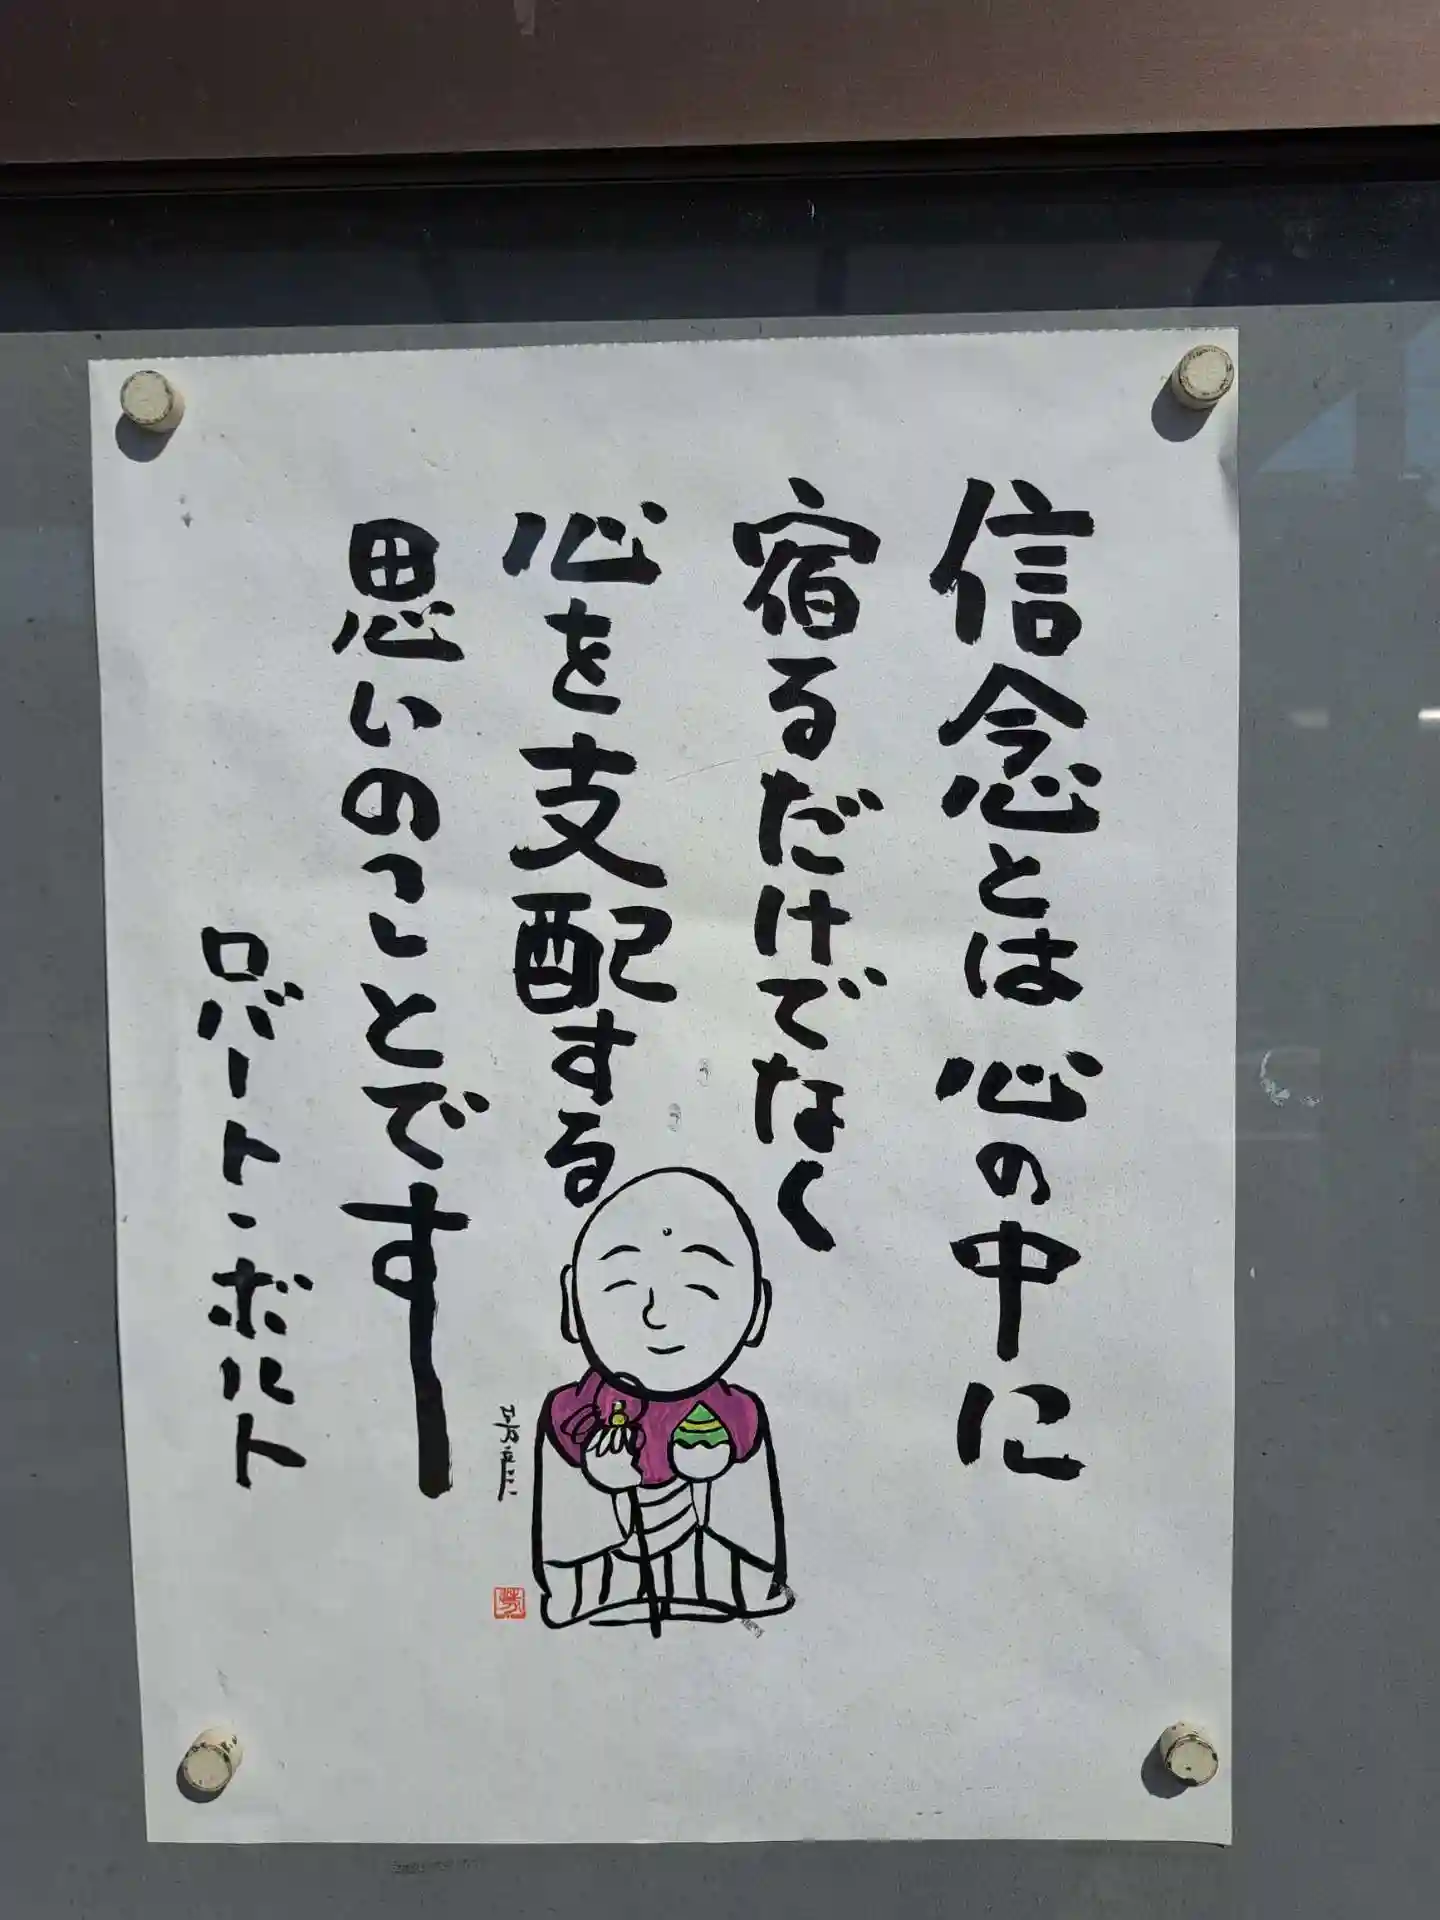 信念とは心の中に
宿るだけでなく
心を支配する
思いのことです
ロバート・ボルト